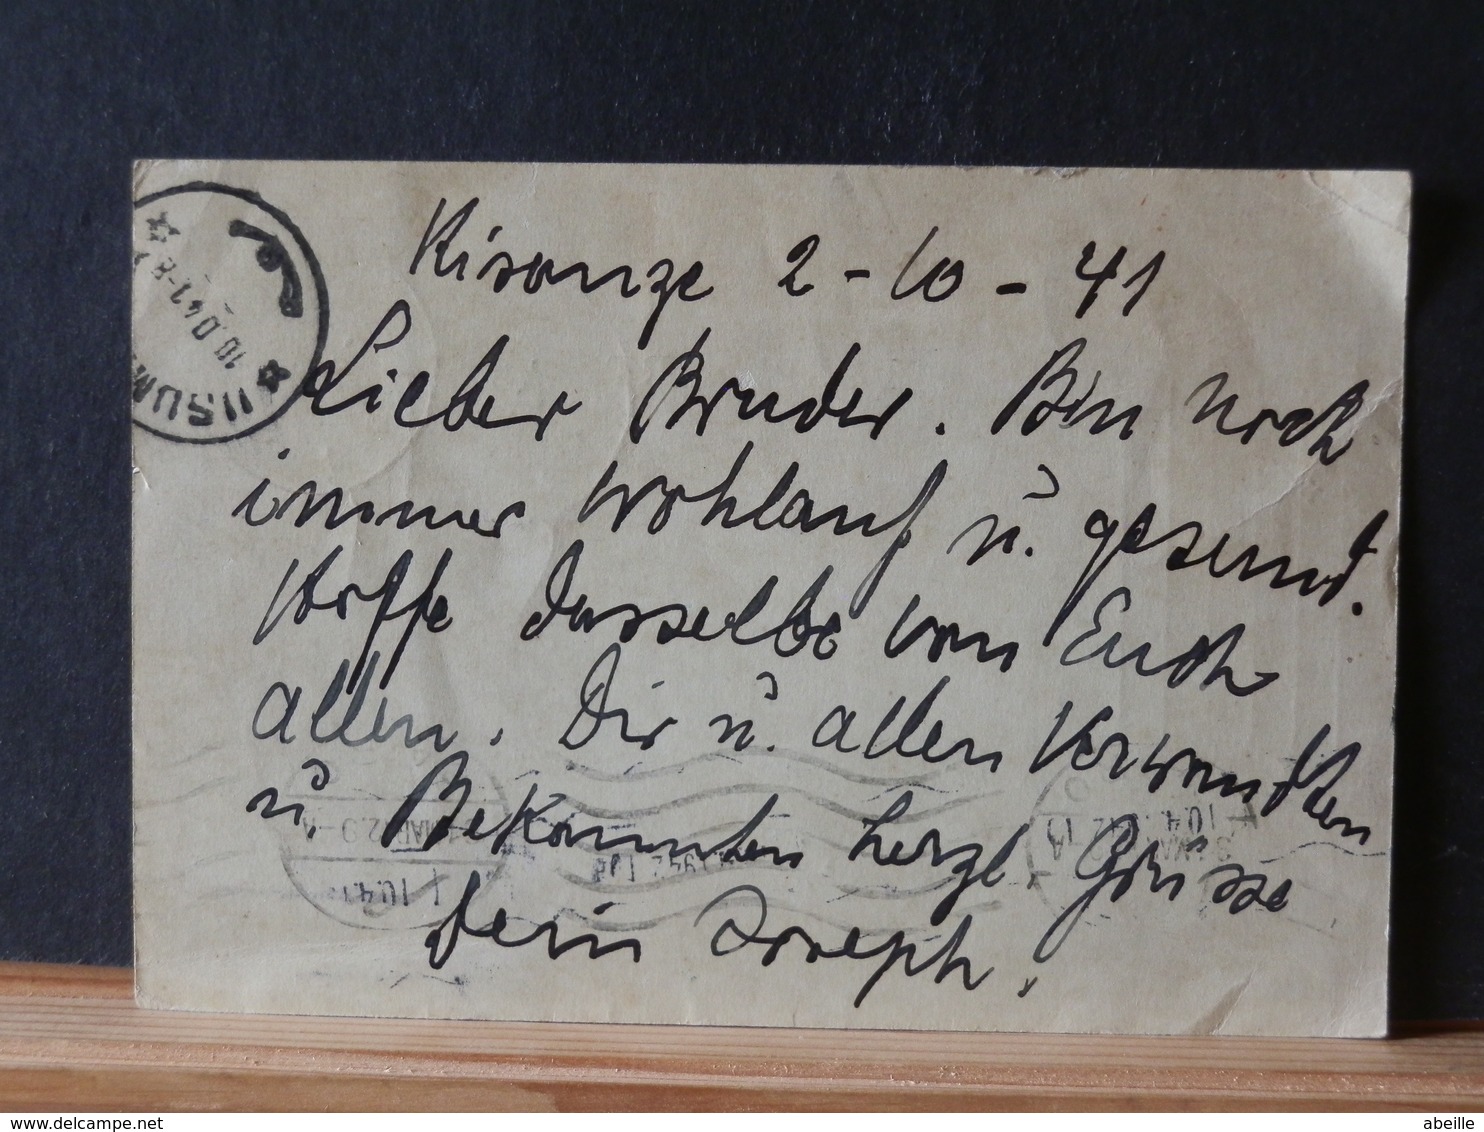 Kisanze 2-10-41
Lieber Bruder. Bin noch
immer wohlauf u. gesund.
Hoffe dasselbe von Euch
allen. Dir u. allen Verwandten
u. Bekannten herzl Grüsse
Dein Joseph.
10.4
delcampe.net
abeille